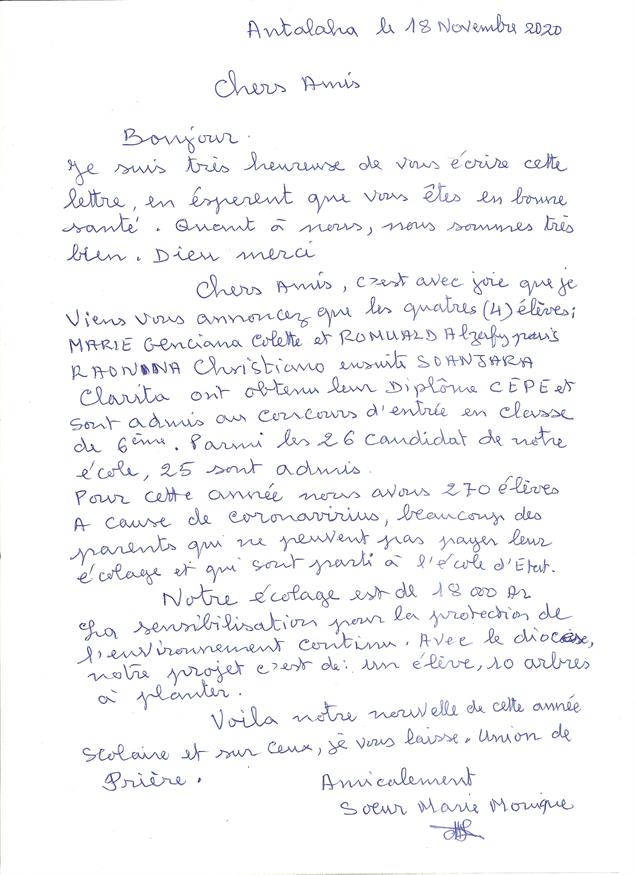 Antalaha le 18 Novembre 2020
Chers Amis
Bonjour.
Je suis très heureuse de vous écrire cette
lettre, en ésperent que vous êtes en bonne
santé. Quant à nous, nous sommes très
bien. Dieu merci
Chers Amis, c'est avec joie que je
Viens vous annoncez que les quatres (4) élèves;
MARIE Genciana Colette et ROMUALD Alzafy paris
RAONINA Christiano ensuite SOANJARA
Clarita ont obtenu leur Diplôme CEPE et
sont admis au concours d'entrée en classe
de 6ème. Parmi les 26 candidat de notre
école, 25 sont admis.
Pour cette année nous avons 270 élèves
A cause de coronavirius, beaucoup des
parents qui ne peuvent pas payer leur
écolage et qui sont parti à l'école d'Etat.
Notre écolage est de 18 000 Ar
La sensibilisation pour la protection de
l'environnement continu. Avec le diocèse,
notre projet c'est de: un élève, 10 arbres
à planter.
Voila notre nouvelle de cette année
scolaire et sur ceux, je vous laisse. Union de
Prière.
Amicalement
Soeur Marie Monique